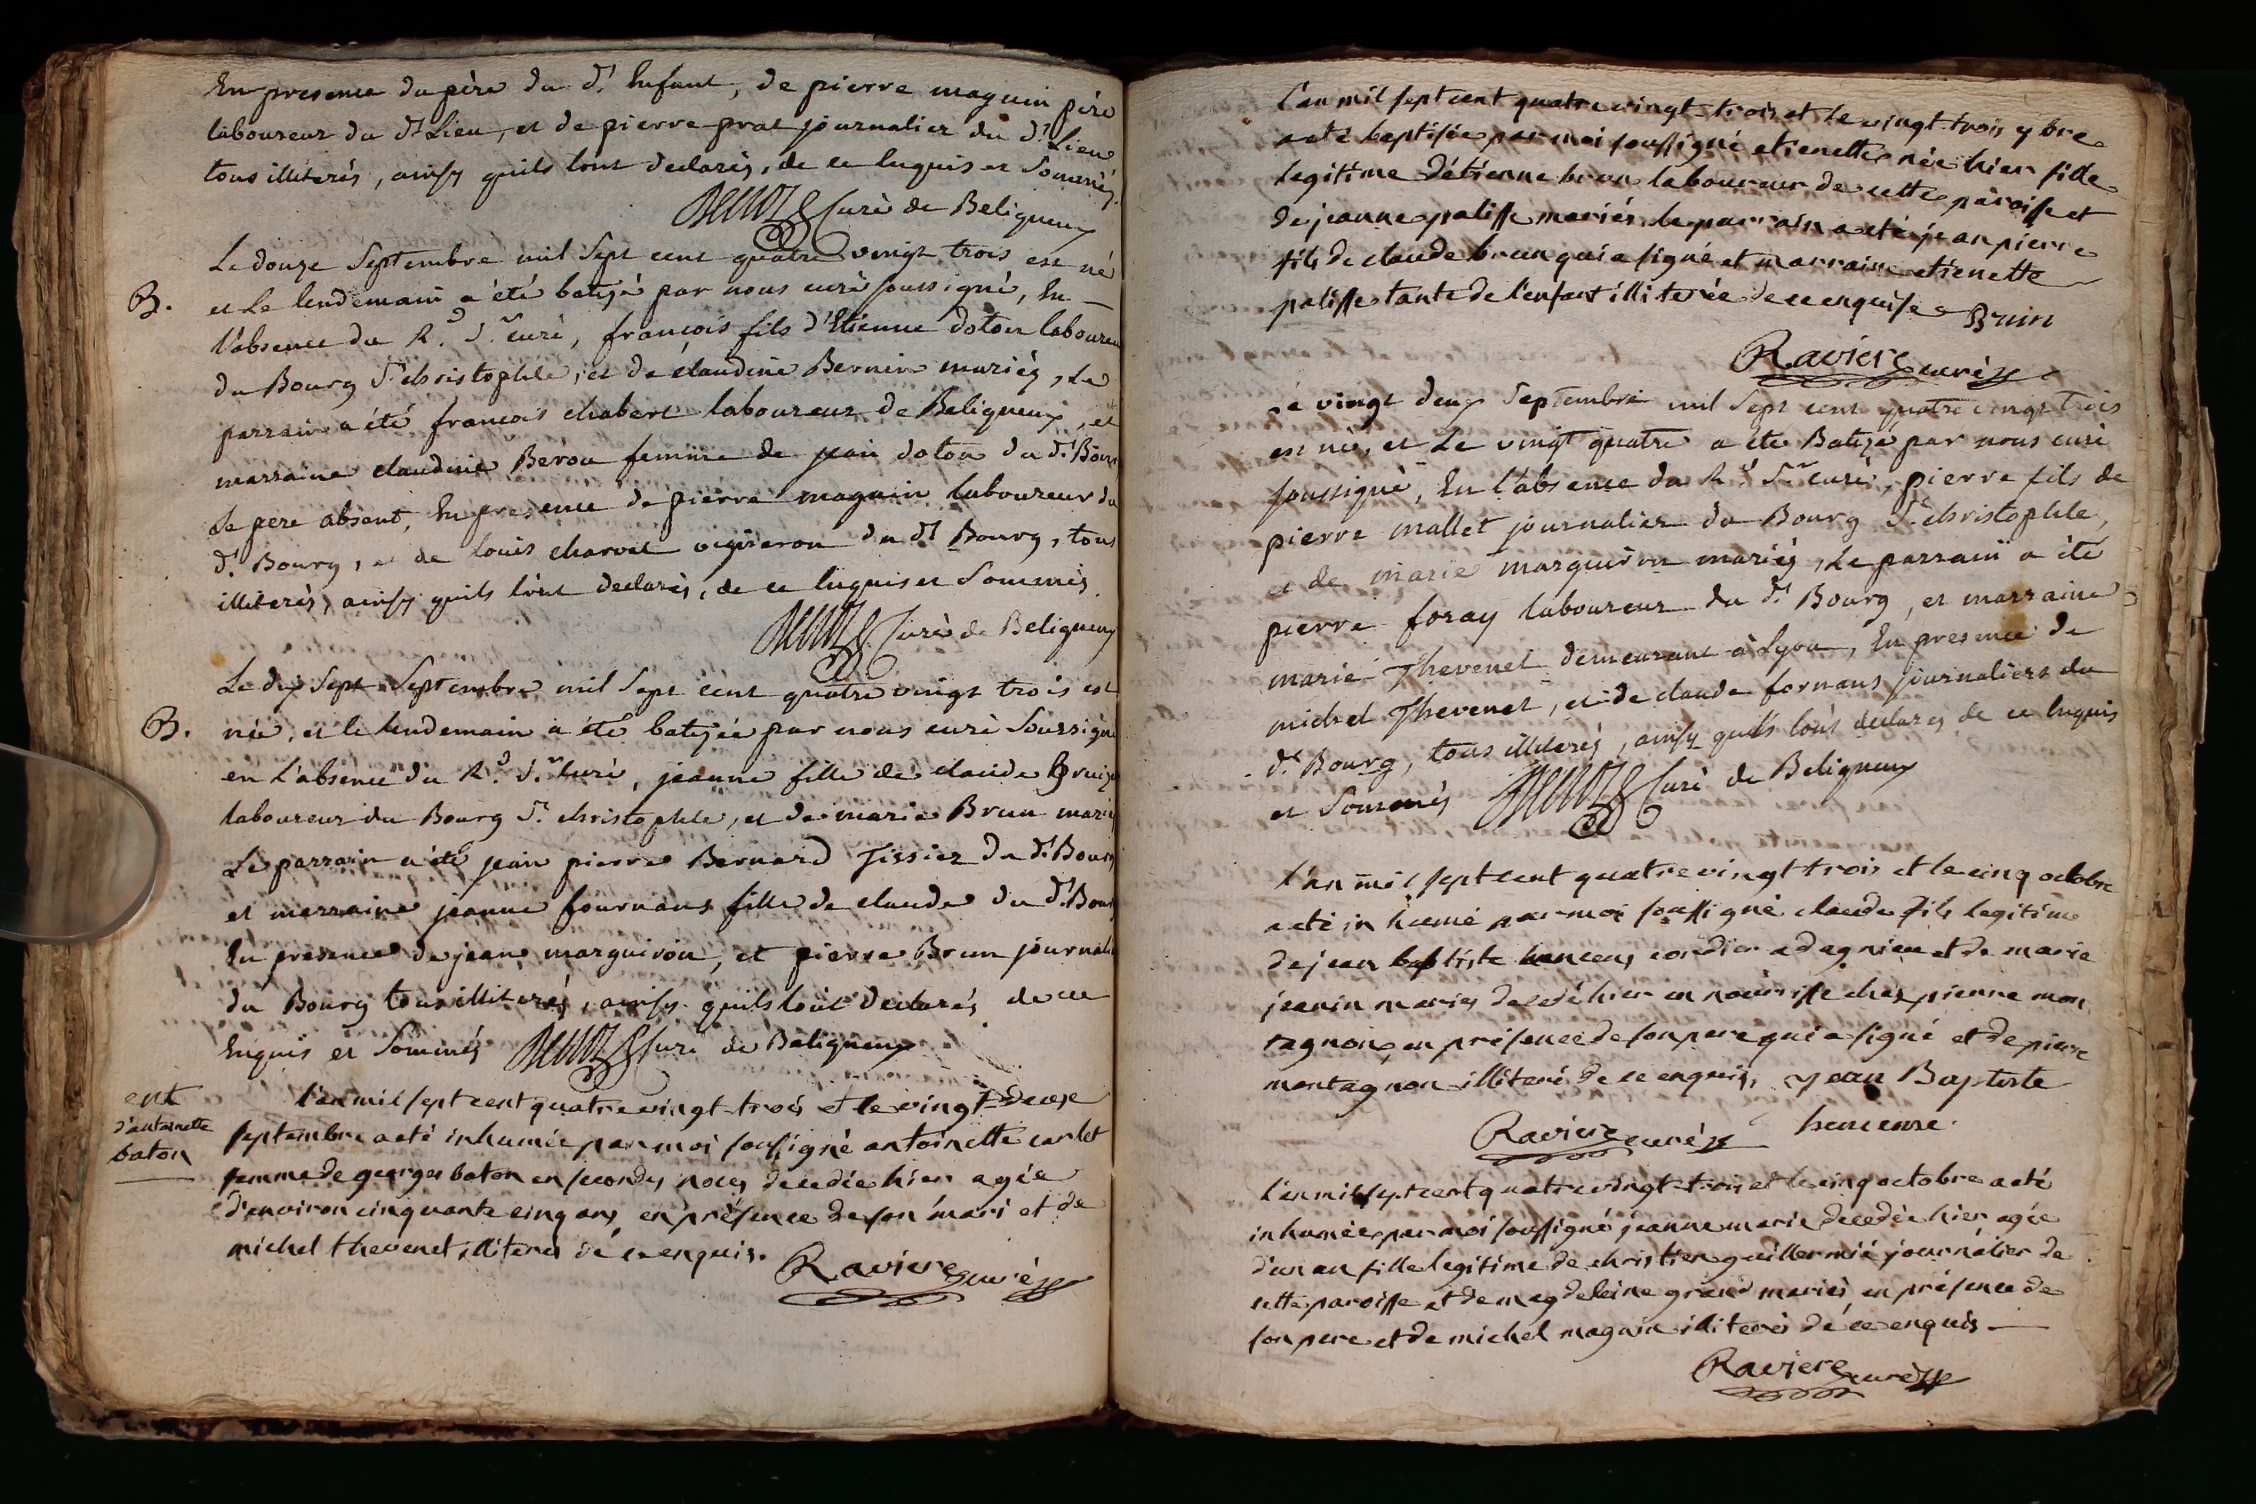 En presence du père du dt. Enfant, de pierre maguin père
laboureur du dt Lieu, et de pierre prat journalier du dt. Lieu
tous illiterés, ainsy quils l'ont declarés, de ce Enquis et Sommés.
Curé de Beligneux
Le douze Septembre mil Sept cent quatre vingt trois est né
B. et Le lendemain a été batizé par nous curé soussigné, En
l'absence du Rd. Sr. curé, françois fils d'Etienne doton laboureur
du Bourg St. christophle, et de claudine Bernin mariés, Le
parrain a été francois chabert laboureur de Beligneux, et
marraine claudine Berou femme de jean doton du dt. Bourg
Le pere absent, En presence de pierre maguin laboureur du
dt. Bourg, et de louis charvat vigneron du dt Bourg, tous
illiterés, ainsy quils l'ont declarés, de ce Enquis et Sommés.
Curé de Beligneux
Le dix Sept Septembre mil Sept cent quatre vingt trois est
B. née, et le lendemain a été batizée par nous curé Soussigné
en L'absence du Rd. Sr. Curé, jeanne fille de claude
laboureur du Bourg St. christophle, et de marie Brun mariés
Le parrain a été jean pierre Bernard Tissier du dt. Bourg
et marraine jeanne fournans fille de claude du dt. Bourg
En presence de jean marguiron, et pierre Brun journali
du Bourg tous illiterés, ainsy quils l'ont declarés, de ce
Enquis et Sommés Curé de Beligneux
ent
d'antoinette
baton
l'an mil sept cent quatre vingt-trois et le vingt-deuxe
septembre a eté inhumée par moi soussigné antoinette carlet
femme de george baton en secondes noces decedée hier agée
d'environ cinquante cinq ans, en présence de son mari et de
michel thevenet illiterés de ce enquis.
Raviere curé
l'an mil sept cent quatre vingt-trois et le vingt-trois 7bre
a eté baptisée par moi soussigné etienette née hier fille
legitime d'étienne brun laboureur de cette paroisse et
de jeanne palisse mariés, le parrain a eté jean pierre
fils de claude brun qui a signé et marraine etienette
palisse tante de l'enfant illiterée de ce enquise Bruin
Raviere curé
Le vingt deux Septembre mil Sept cent quatre vingt trois
est né, et Le vingt quatre a été Batizé par nous curé
soussigné, En l'absence du Rd Sr curé, pierre fils de
pierre mallet journalier du Bourg St. christophle,
et de marie marguiron mariés, Le parrain a été
pierre foray laboureur du dt. Bourg, et marraine
marie Thevenet demeurant à Lyon, En presence de
michel Thevenet, et de claude fornans journaliers du
dt. Bourg, tous illiterés, ainsy quils l'ont declarés de ce Enquis
et Sommés Curé de Beligneux
l'an mil sept cent quatre vingt trois et le cinq octobre
a eté inhumé par moi soussigné claude fils legitime
de jean baptiste cordier a dagnieu et de marie
jeanin mariés decedé hier en nourrisse chez pierre mon
tagnon, en présence de son pere qui a signé et de pierre
montagnon illiteré de ce enquis, jean Baptiste
Raviere curé
l'an mil sept cent quatre vingt-trois et le cinq octobre a eté
inhumée par moi soussigné jeanne marie decedée hier agée
d'un an fille legitime de christien guillermié journalier de
cette paroisse et de magdeleine grand mariés, en présence de
son pere et de michel maguin illiterés de ce enquis
Raviere curé